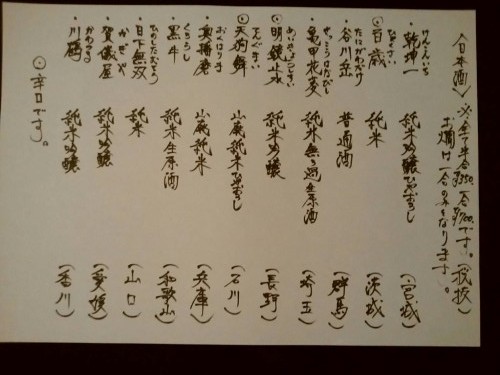 〈日本酒〉 ※全て半合¥350、一合¥700です。(税抜)
お燗は一合のみとなります。
・乾坤一 けんこんいち 純米吟醸ひやおろし (宮城)
⊙百歳 ももとせ 純米 (茨城)
・谷川岳 たにがわだけ 普通酒 (群馬)
・亀甲花菱 きっこうはなびし 純米無ろ過生原酒 (埼玉)
⊙明鏡止水 めいきょうしすい 純米吟醸 (長野)
⊙天狗舞 てんぐまい 山廃純米ひやおろし (石川)
・奥播磨 おくはりま 山廃純米 (兵庫)
・黒牛 くろうし 純米生原酒 (和歌山)
・日下無双 ひのしたむそう 純米 (山口)
・賀儀屋 かぎや 純米吟醸 (愛媛)
・川鶴 かわつる 純米吟醸 (香川)
⊙辛口です。